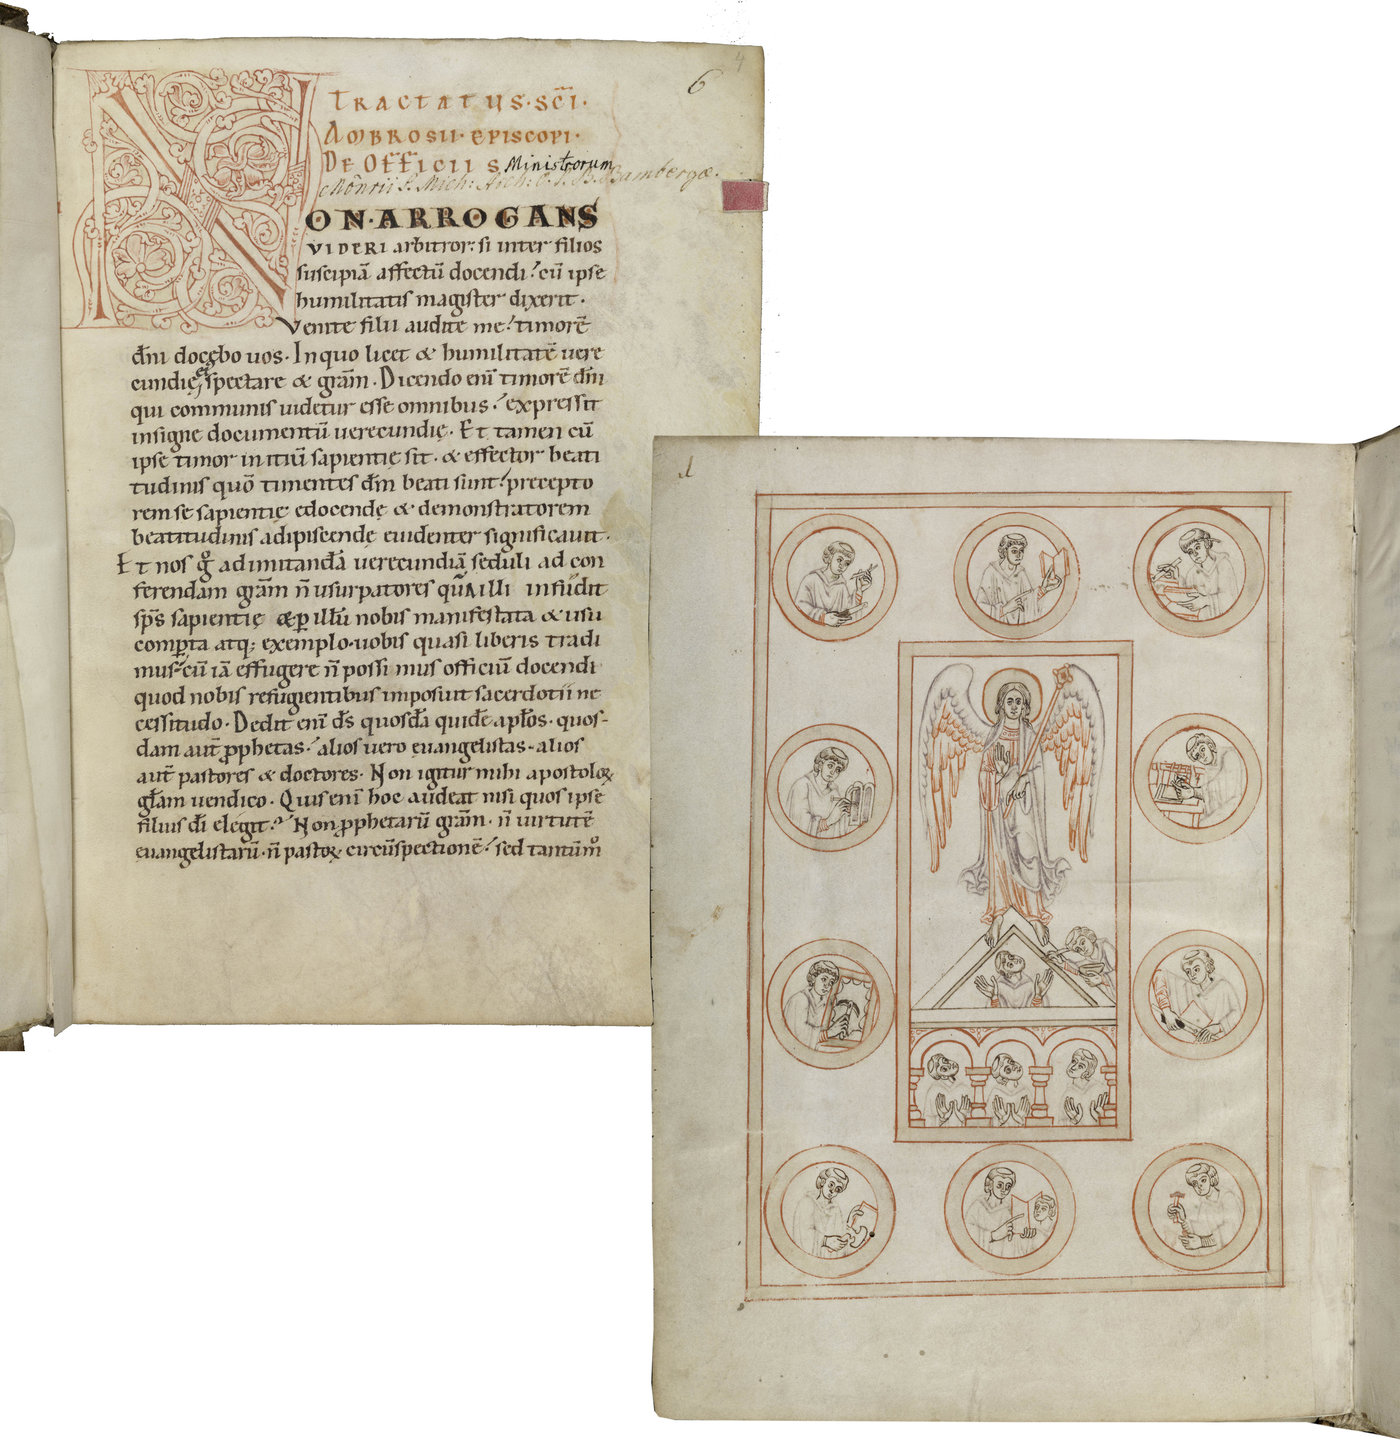 4
6
TRACTATUS·SC̅I·
AMBROSII·EPISCOPI·
DE OFFICIIS Ministrorum
Mon̅rii S. Mich: Arch: O. S. B. Bambergæ.
NON·ARROGANS
VIDERI arbitror: si inter filios
suscipiā affectū docendi? cū ipse
humilitatis magister dixerit·
Venite filii audite me! timorē
dn̄i docębo uos· In quo licet & humilitatē uere
cundię ei spectare & grām· Dicendo enī timorē dn̄i
qui communis uidetur esse omnibus! expressit
insigne documentū uerecundię· Et tamen cū
ipse timor initiū sapientię sit· & effector beati
tudinis quō timentes dm̄ beati sunt! precepto
rem se sapientię edocendę & demonstratorem
beatitudinis adipiscendę euidenter significauit·
Et nos ḡ ad imitandā uerecundiā seduli ad con
ferendam grām n̄ usurpatores quę illi infudit
sp̄s sapientię & p illū nobis manifestata & usu
comperta atq; exemplo· uobis quasi liberis tradi
mus! cū iā effugere n̄ possimus officiū docendi
quod nobis refugientibus imposuit sacerdotii ne
cessitudo· Dedit enī ds̄ quosdā quidē aplōs· quos-
dam aut̄ pphetas! alios uero ęuangelistas· alios
aut̄ pastores & doctores· Non igitur mihi apostoloꝝ
glām uendico· Quis enī hoc audeat nisi quos ipse
filius dī elegit? Non pphetarū grām· n̄ uirtutē
euangelistarū· n̄ pastoꝝ circūspectionē! sed tantūm̊
1